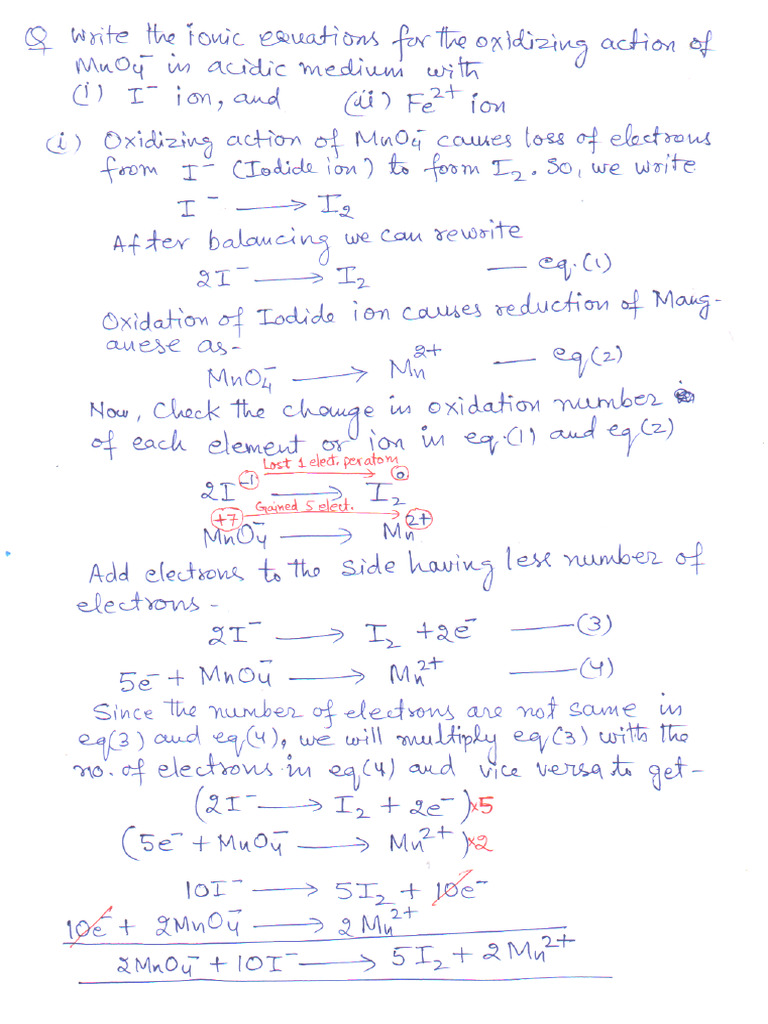 Q Write the ionic equations for the oxidizing action of
MnO₄⁻ in acidic medium with
(i) I⁻ ion, and (ii) Fe²⁺ ion
(i) Oxidizing action of MnO₄⁻ causes loss of electrons
from I⁻ (Iodide ion) to form I₂. So, we write
I⁻ ⟶ I₂
After balancing we can rewrite
2I⁻ ⟶ I₂ — eq.(1)
Oxidation of Iodide ion causes reduction of Mang-
anese as-
MnO₄⁻ ⟶ Mn²⁺ — eq(2)
Now, Check the change in oxidation number
of each element or ion in eq.(1) and eq(2)
Lost 1 elect. per atom
2I⁻¹ ⟶ I₂⁰
Gained 5 elect.
+7 2+
MnO₄⁻ ⟶ Mn
Add electrons to the side having less number of
electrons-
2I⁻ ⟶ I₂ + 2e⁻ — (3)
5e⁻ + MnO₄⁻ ⟶ Mn²⁺ — (4)
Since the number of electrons are not same in
eq(3) and eq(4), we will multiply eq(3) with the
no. of electrons in eq(4) and vice versa to get-
(2I⁻ ⟶ I₂ + 2e⁻)×5
(5e⁻ + MnO₄⁻ ⟶ Mn²⁺)×2
10I⁻ ⟶ 5I₂ + 10e⁻
10e⁻ + 2MnO₄⁻ ⟶ 2Mn²⁺
2MnO₄⁻ + 10I⁻ ⟶ 5I₂ + 2Mn²⁺